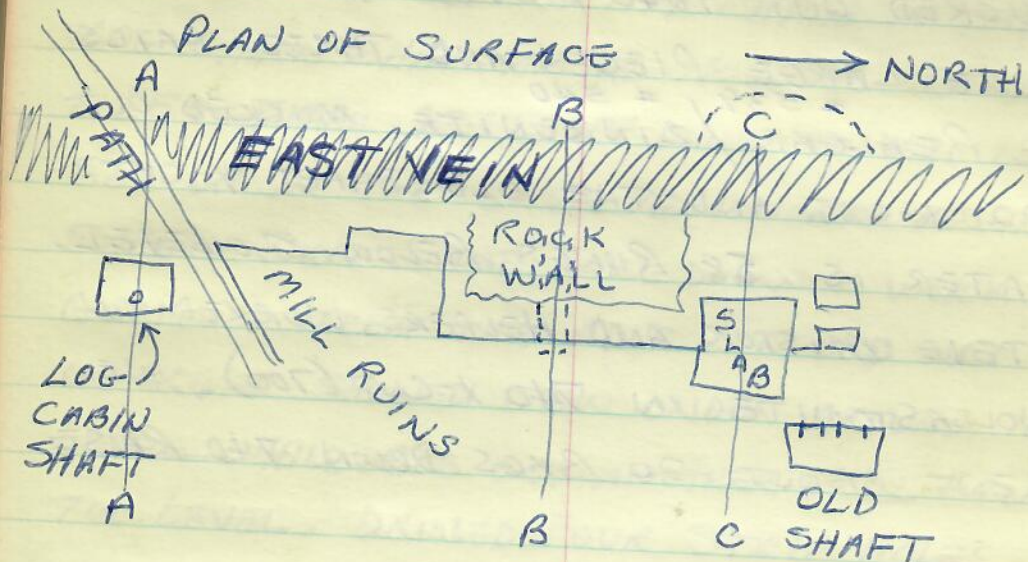 PLAN OF SURFACE
NORTH
A
B
C
PATH
EAST VEIN
ROCK
WALL
MILL RUINS
SLAB
LOG
CABIN
SHAFT
A
B
C
OLD
SHAFT